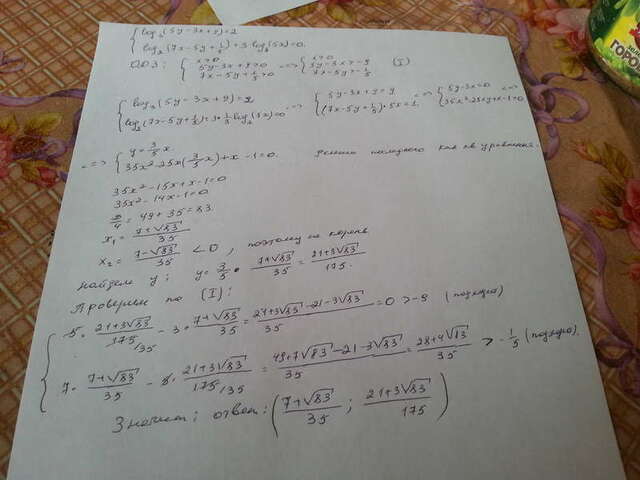 log₃(5y-3x+9)=2
log₂(7x-5y+1/5)+3 log₈(5x)=0.
ОДЗ: { x>0 5y-3x+9>0 7x-5y+1/5>0 => { x>0 5y-3x>-9 7x-5y>-1/5 (I)
{ log₃(5y-3x+9)=2 log₂(7x-5y+1/5)+3*1/3 log₂(5x)=0 => { 5y-3x+9=9 (7x-5y+1/5)*5x=1. => { 5y-3x=0 35x²-25xy+x-1=0 <=>
<=> { y=3/5 x 35x²-25x(3/5 x)+x-1=0. Решим как кв уравнения.
35x²-15x+x-1=0
35x²-14x-1=0.
D/4 = 49+35=83
x₁= (7+√83)/35
x₂= (7-√83)/35 <0, поэтому не корень
Найдем y: y=3/5 * (7+√83)/35 = (21+3√83)/175.
Проверим по (I):
5 * (21+3√83)/175/35 - 3 * (7+√83)/35 = (21+3√83-21-3√83)/35 = 0 >-9 (подходит)
7 * (7+√83)/35 - 5 * (21+3√83)/175/35 = (49+7√83-21-3√83)/35 = (28+4√83)/35 > -1/5 (подходит).
Значит: ответ: ((7+√83)/35 ; (21+3√83)/175)
ГОРО